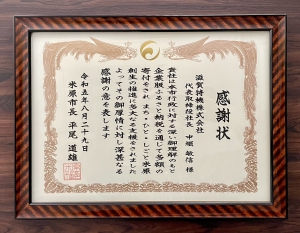 感謝状
滋賀特機株式会社
代表取締役社長 中堀 敏信 様
貴社は本市行政に対する深い御理解のもと
企業版ふるさと納税を通じて多額の
寄付をされ まち・ひと・しごと米原
創生の推進に多大な支援をされました
よってその御厚情に対し深甚なる
感謝の意を表します
令和五年八月二十九日
米原市長 平尾 道雄